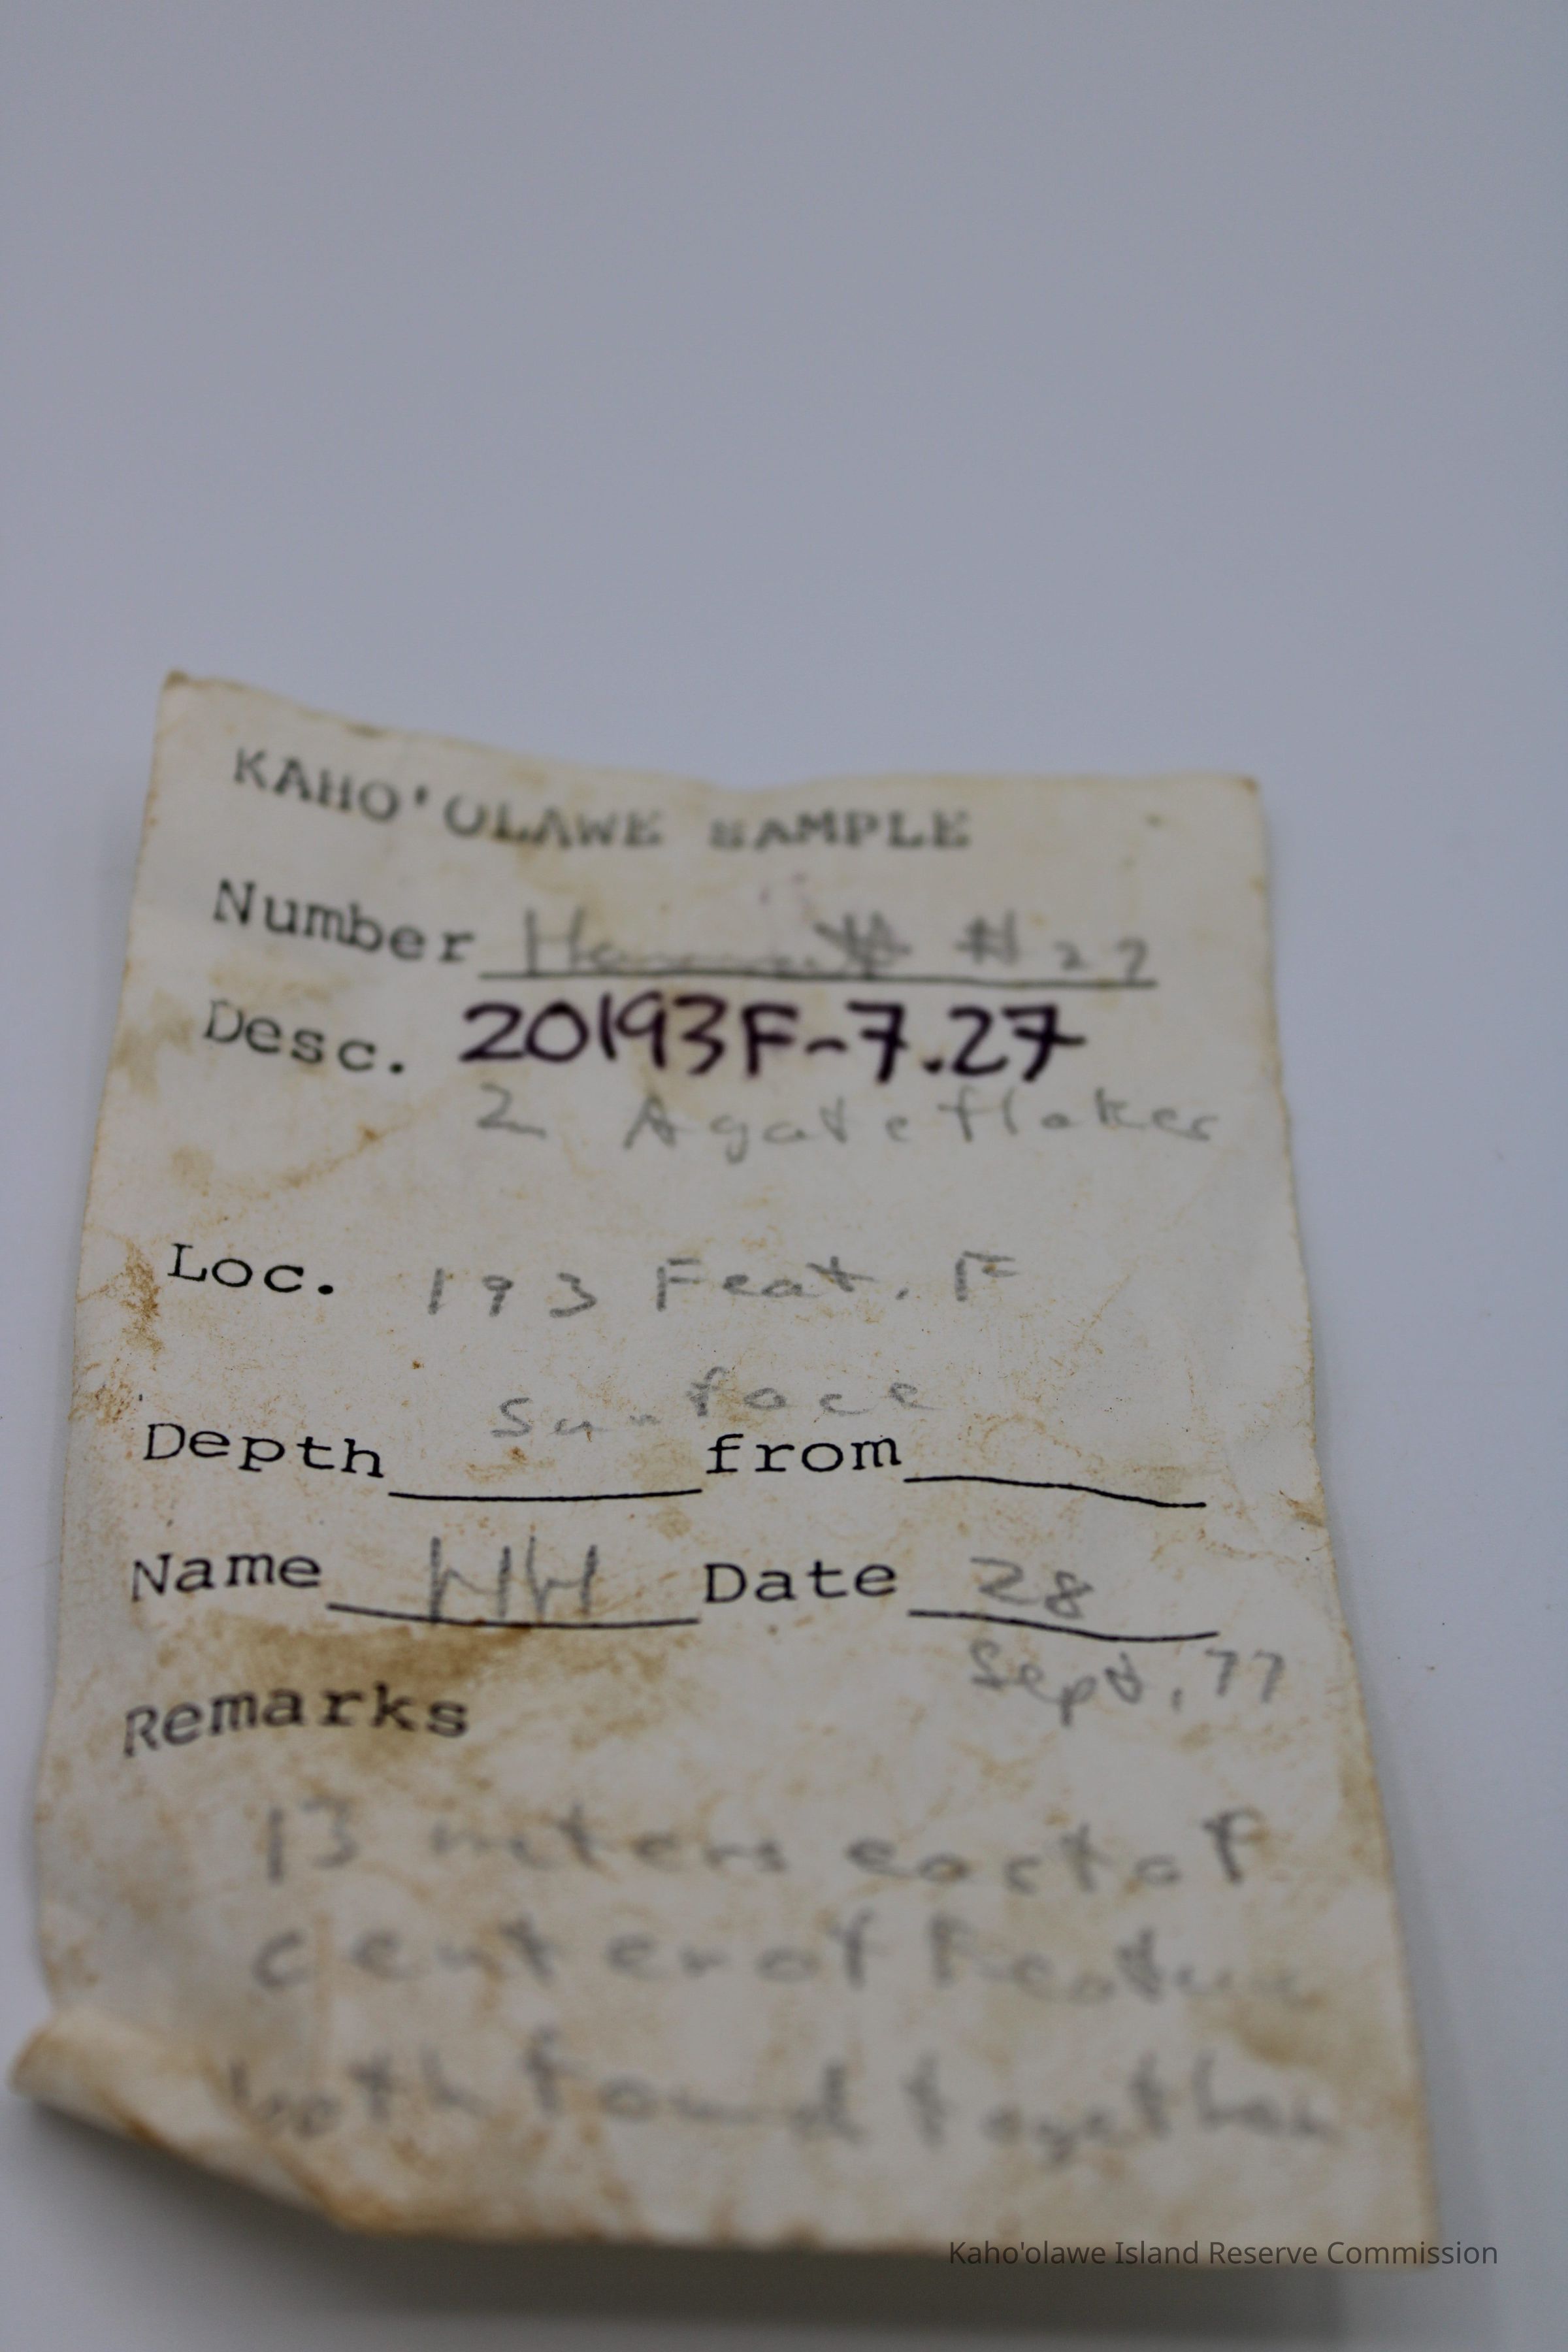 KAHO'OLAWE SAMPLE
Number # 27
Desc. 20193F-7.27
2 Agate flakes
Loc. 193 Feat. F
Surface
Depth from
Name HH Date 28
Sept, 77
Remarks
13 meters east of
center of Feature
both found together
Kaho'olawe Island Reserve Commission